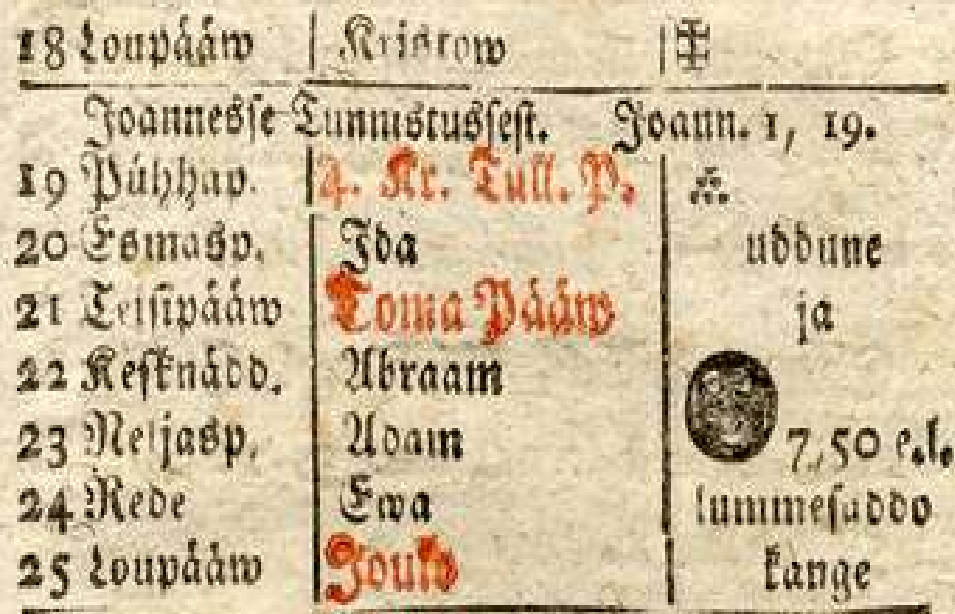 18 Loupääw Kristow
Joannesse Tunnistussest. Joann. 1, 19.
19 Pühhap. 4. Kr. Tull. P.
20 Esmasp. Ida uddune
21 Teisipääw Toma Pääw ja
22 Kesknädd. Abraam
23 Neljasp. Adam 7,50 e.l.
24 Rede Ewa lummesaddo
25 Loupääw Jould kange